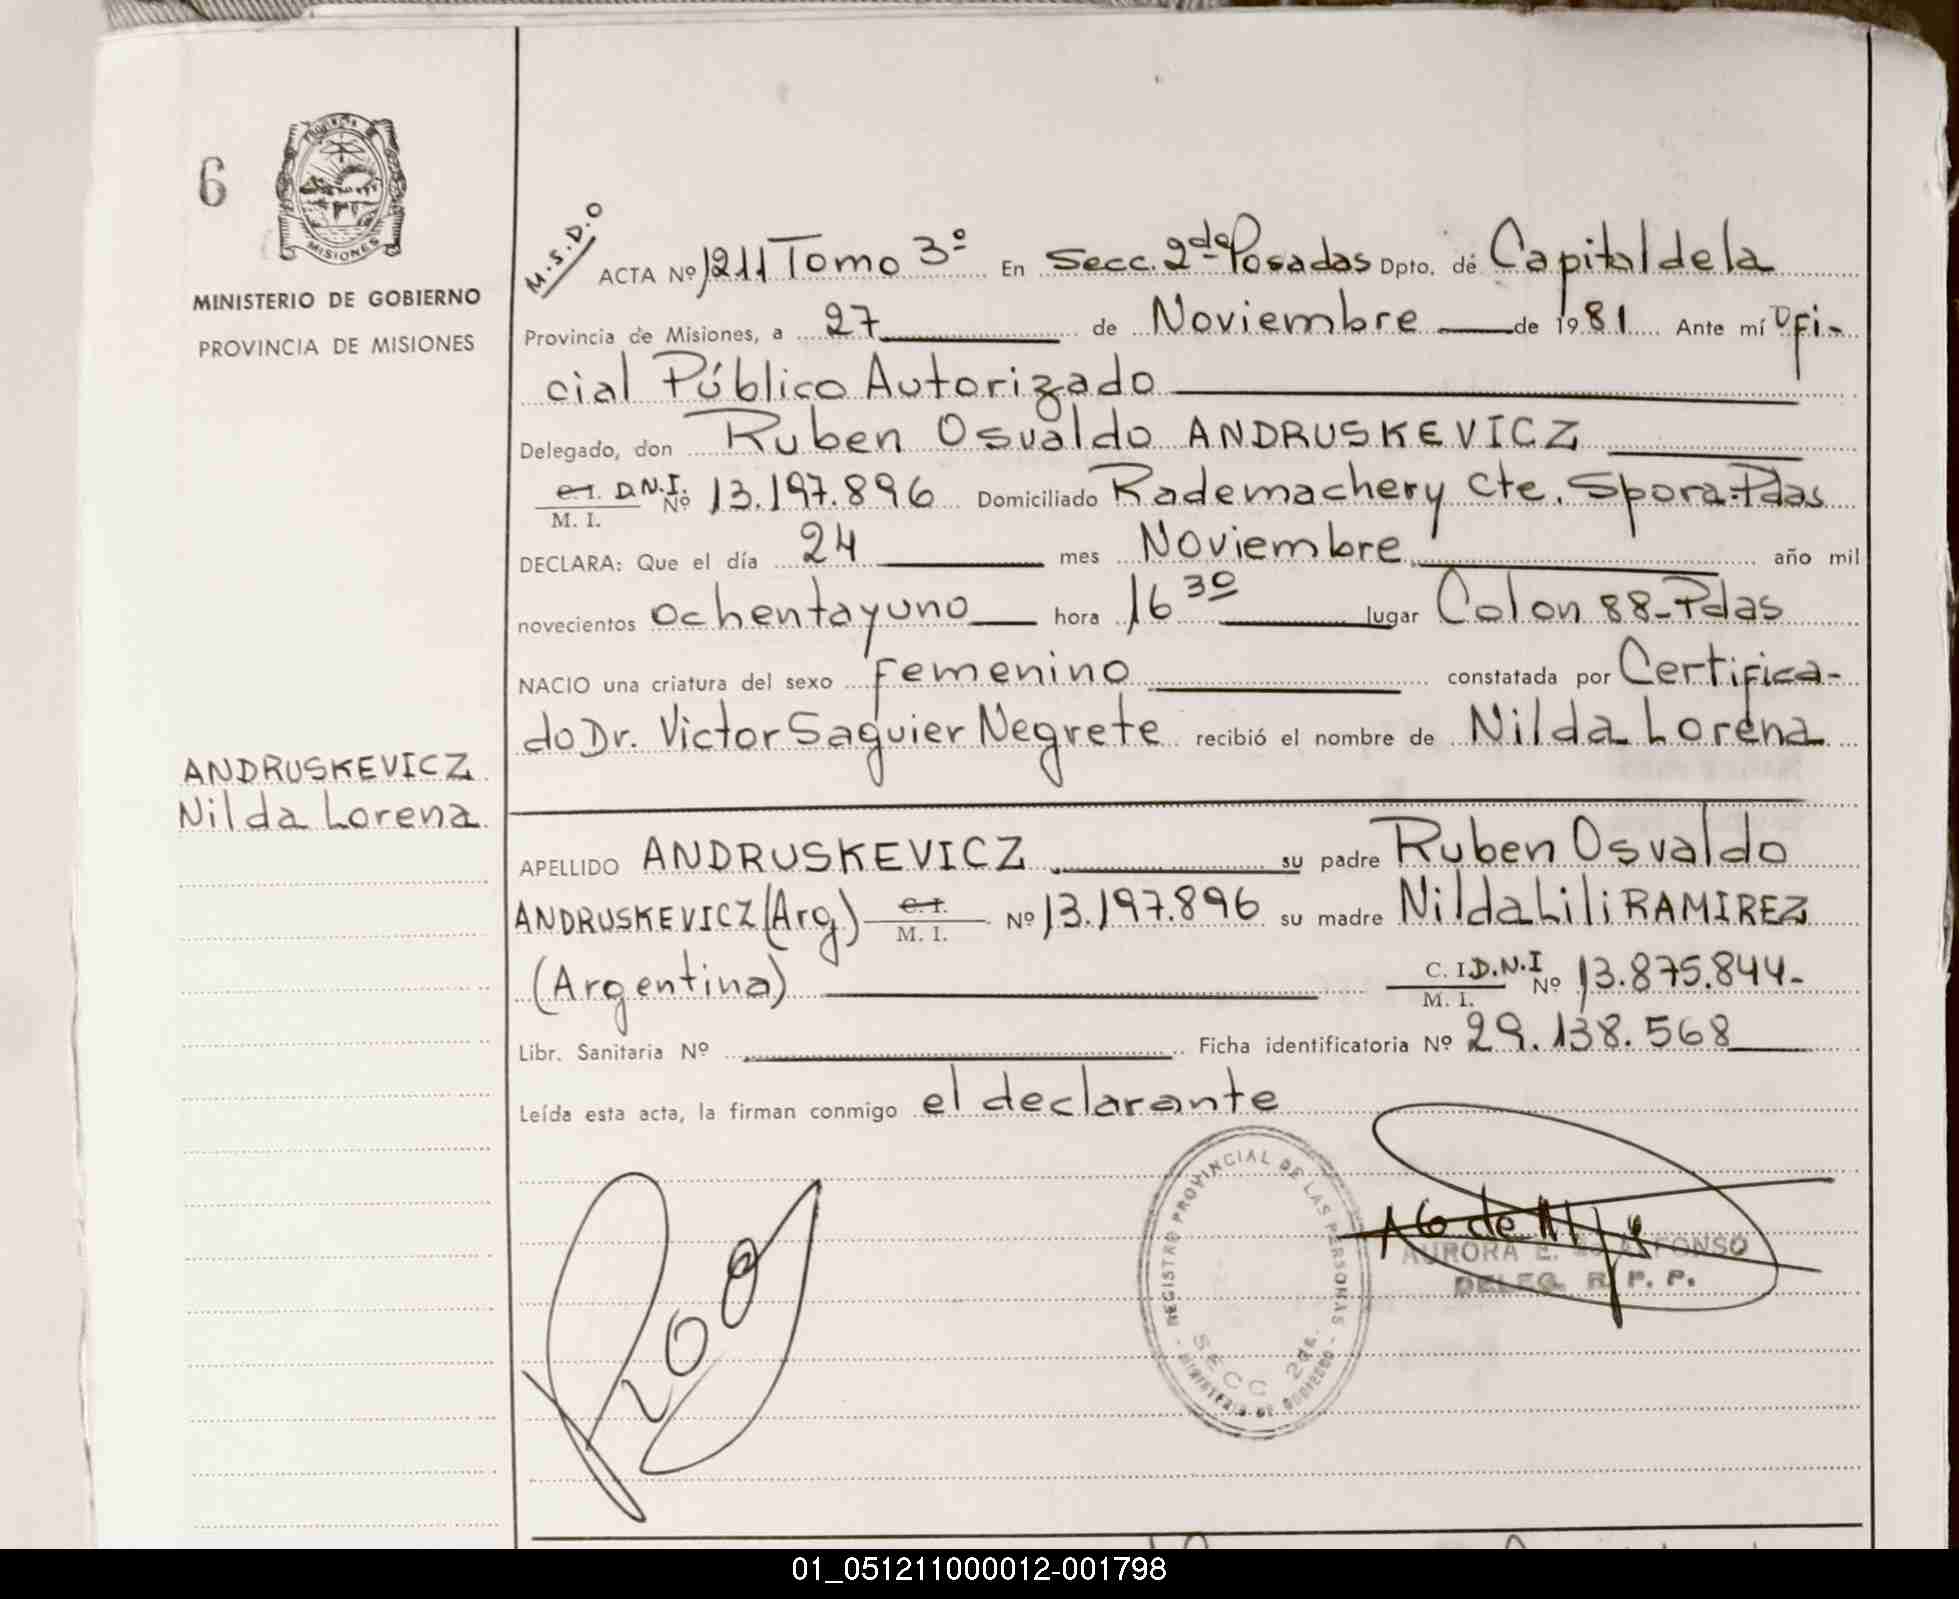 6
PROVINCIA
MISIONES
MINISTERIO DE GOBIERNO
PROVINCIA DE MISIONES
ANDRUSKEVICZ
Nilda Lorena
M.S.D.O
ACTA Nº 1211 Tomo 3º En Secc. 2da Posadas Dpto. de Capital de la
Provincia de Misiones, a 27 de Noviembre de 1981 Ante mí Ofi-
cial Público Autorizado
Delegado, don Ruben Osvaldo ANDRUSKEVICZ
C.I. D.N.I. Nº 13.197.896 Domiciliado Rademacher y Cte. Spora-Pdas
M. I.
DECLARA: Que el día 24 mes Noviembre año mil
novecientos ochenta y uno hora 16 30 lugar Colon 88-Pdas
NACIO una criatura del sexo femenino constatada por Certifica-
do Dr. Victor Saguier Negrete recibió el nombre de Nilda Lorena
APELLIDO ANDRUSKEVICZ su padre Ruben Osvaldo
ANDRUSKEVICZ (Arg) C.I. M. I. Nº 13.197.896 su madre Nilda Lili RAMIREZ
(Argentina) C. I D.N.I M. I. Nº 13.875.844-
Libr. Sanitaria Nº Ficha identificatoria Nº 29.138.568
Leída esta acta, la firman conmigo el declarante
REGISTRO PROVINCIAL DE LAS PERSONAS
SECC 2da.
MINISTERIO DE GOBIERNO
AURORA E. ALFONSO
DELEG. R. P. P.
01_051211000012-001798